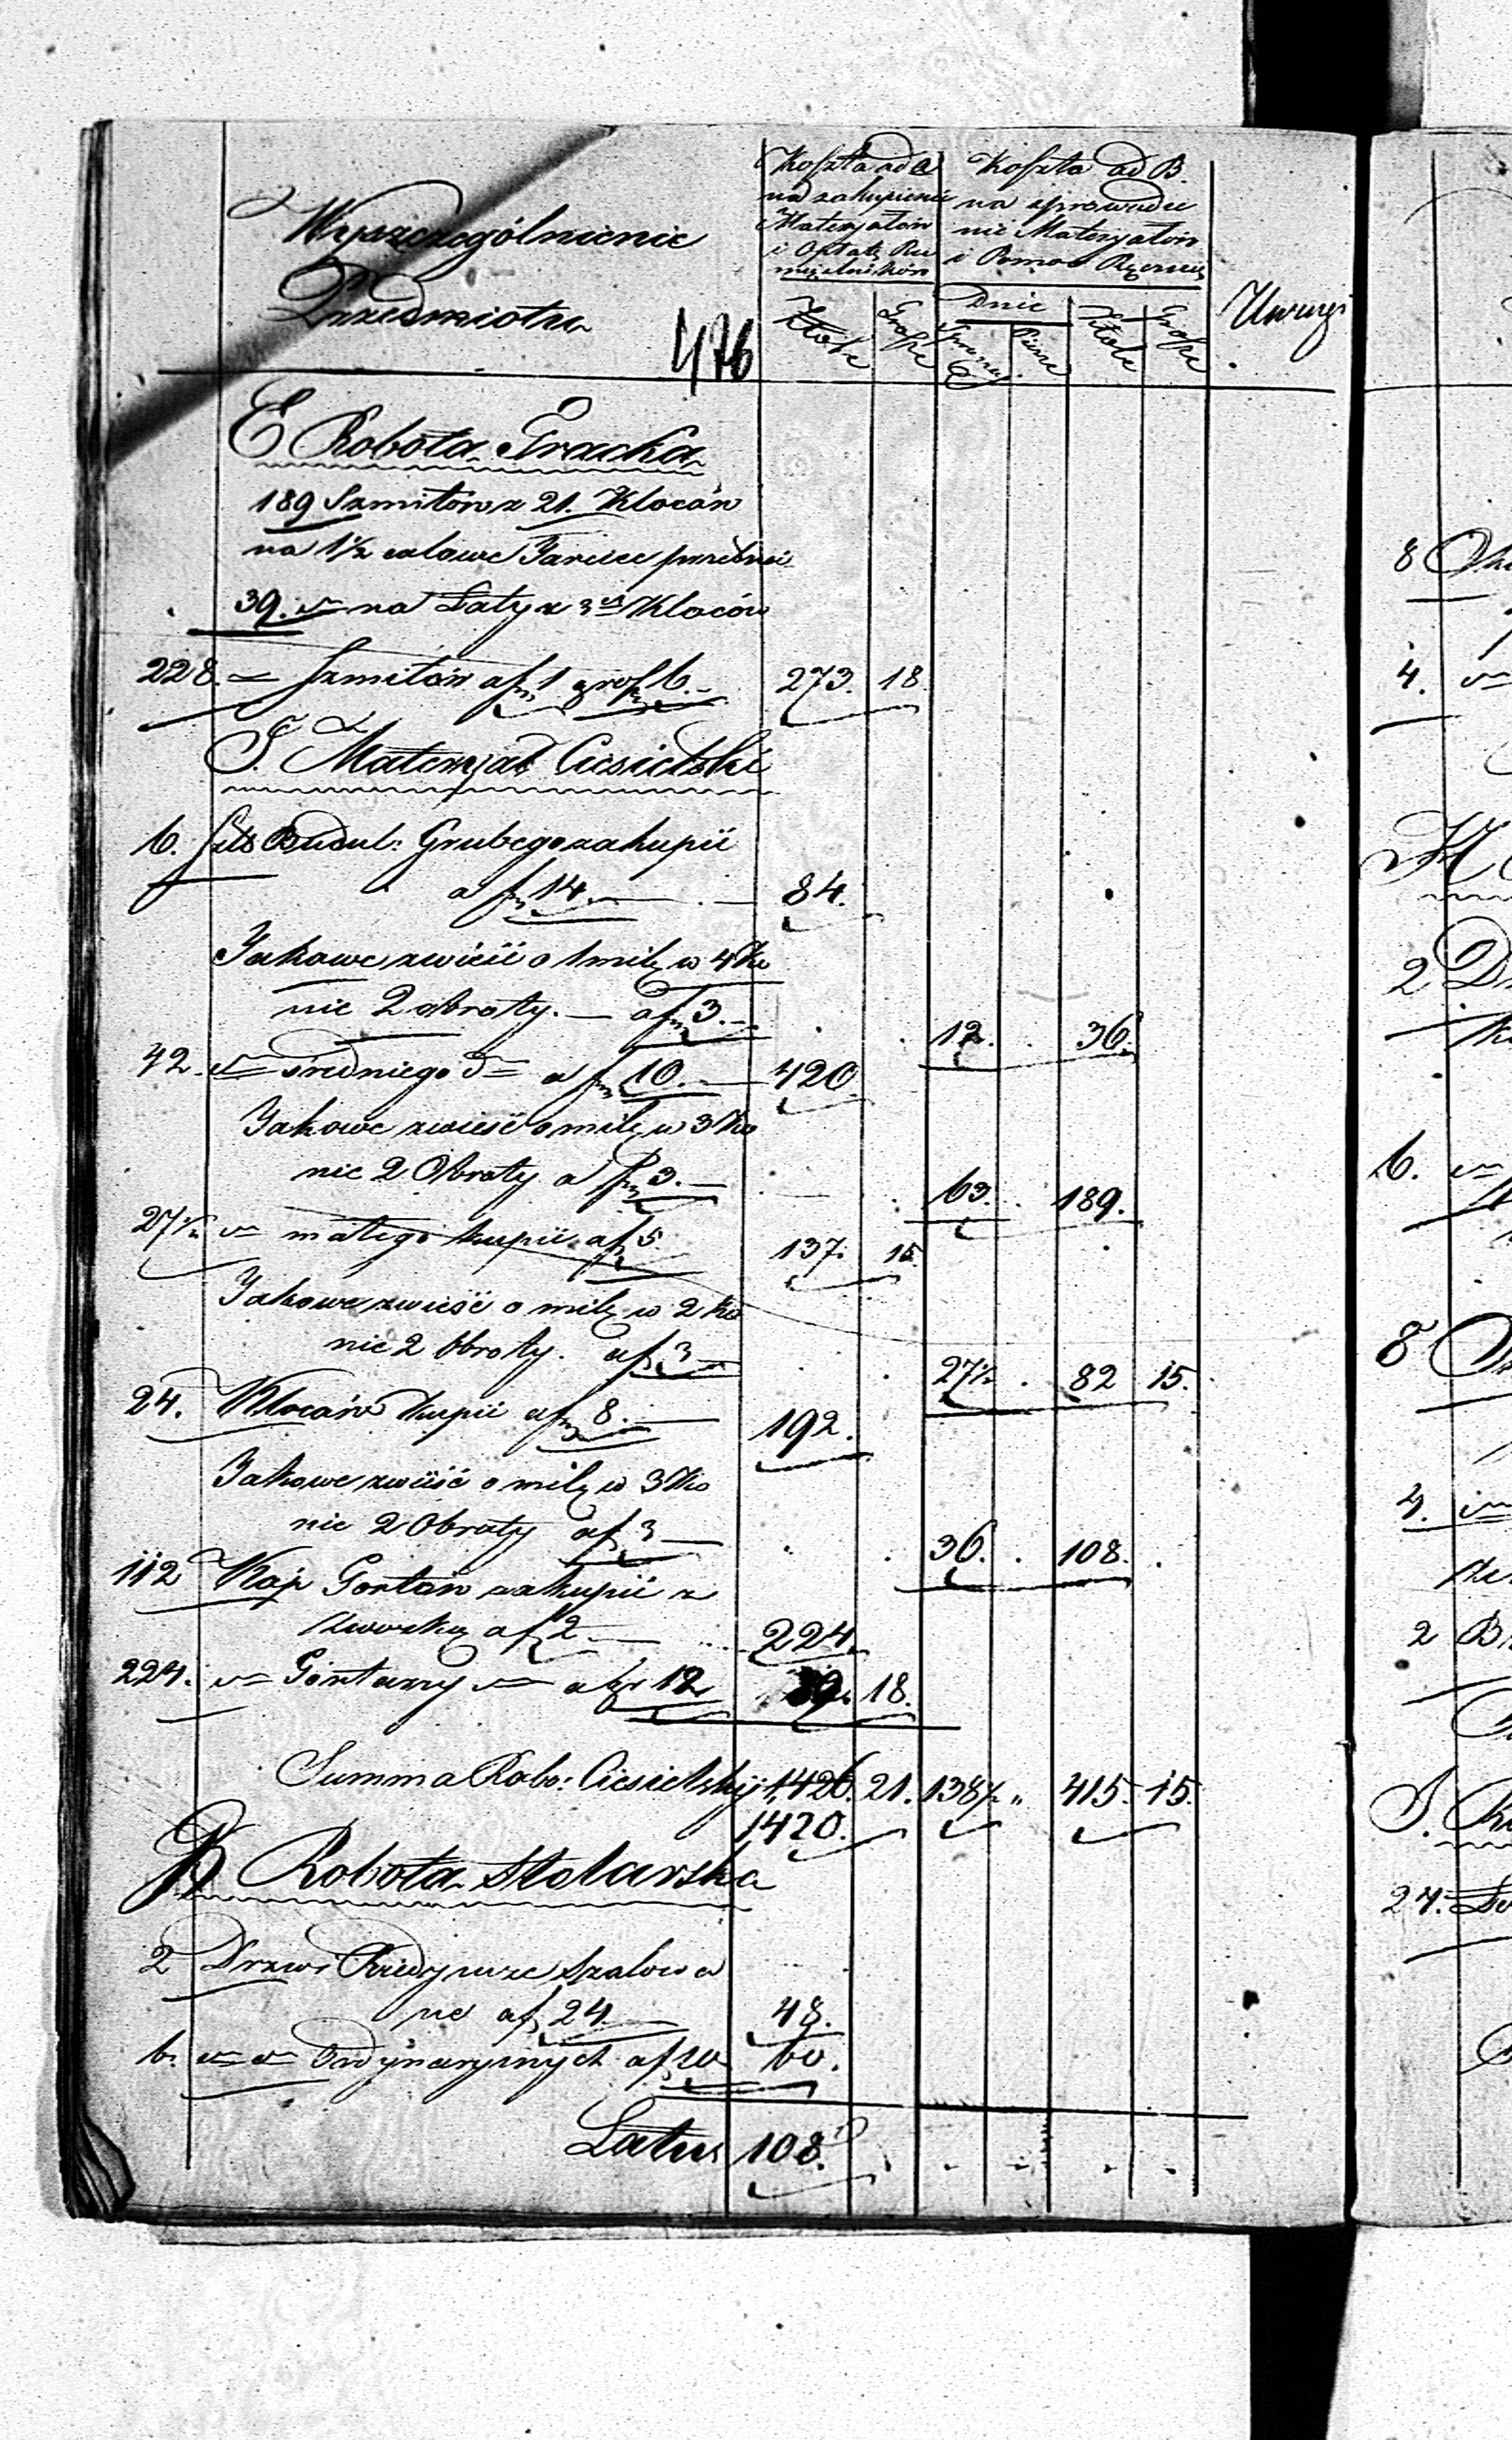 Wyszczególnienie
Przedmiotu
476
Koszta ad a
na zakupienie
Materyałów
i Opłatę Rze
mieślników
Koszta ad B.
na sprowadze
nie Materyałów
i Pomoc Ręczną
Uwagi
Dnie
Złote Grosze Piesze Złote Grosze
E Robota Tracka
189 Szmitów z 21. Kloców
na 1½ calowe Tarcice
39. na Łaty z 3 Kloców
228. Szmitów a f 1 gros 6. 273. 18
F. Materyał Ciesielski
6. Szt Budul: Grubego zakupić
a f 14. 84.
Jakowe zwieść o 1 milę w 4 Ko
nie 2 obroty. a f 3. 12. 36.
42. średniego a f 10. 420
Jakowe zwieść o milę w 3 Ko
nie 2 Obroty a f 3. 63. 189.
27½ małego kupić a f 5. 137. 15
Jakowe zwieść o milę w 2 Ko
nie 2 Obroty. a f 3 27½ 82 15.
24. Kloców kupić a f 8. 192.
Jakowe zwieść o milę w 3 Ko
nie 2 Obroty a f 3 36. 108.
112 Kóp Gontów zakupić z
a f 2 224.
224. Gontarzy a gr 12 89. 18.
Summa Robo: Ciesielskiej 1,426. 21. 138½ " 415. 15.
1,420.
Robota Stolarska
2 Drzwi Szalowa
ne a f 24 48.
6. Ordynaryinych a f 10 60.
Latus 108.